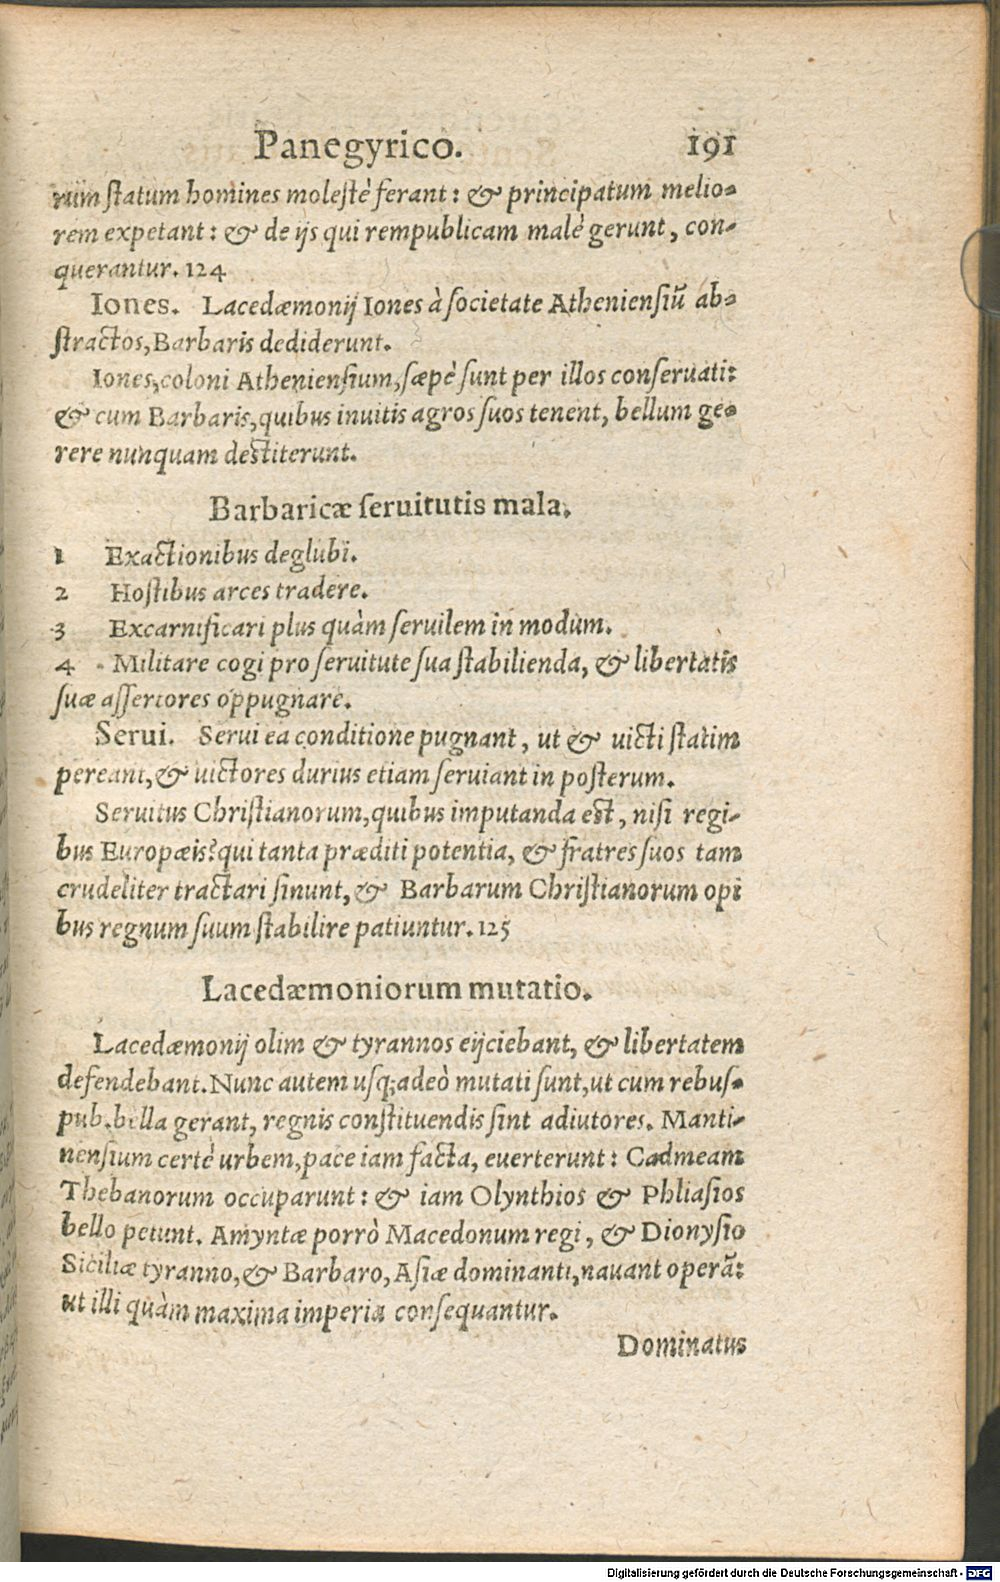 Panegyrico. 191
rum statum homines molestè ferant: & principatum melio-
rem expetant: & de ijs qui rempublicam malè gerunt, con-
querantur. 124
Iones. Lacedæmonij Iones à societate Atheniensiũ ab-
stractos, Barbaris dediderunt.
Iones, coloni Atheniensium, sæpè sunt per illos conseruati:
& cum Barbaris, quibus inuitis agros suos tenent, bellum ge-
rere nunquam destiterunt.
Barbaricæ seruitutis mala.
1 Exactionibus deglubi.
2 Hostibus arces tradere.
3 Excarnificari plus quàm seruilem in modum.
4 Militare cogi pro seruitute sua stabilienda, & libertatis
suæ assertores oppugnare.
Serui. Serui ea conditione pugnant, ut & uicti statim
pereant, & uictores durius etiam seruiant in posterum.
Seruitus Christianorum, quibus imputanda est, nisi regi-
bus Europæis? qui tanta præditi potentia, & fratres suos tam
crudeliter tractari sinunt, & Barbarum Christianorum opi
bus regnum suum stabilire patiuntur. 125
Lacedæmoniorum mutatio.
Lacedæmonij olim & tyrannos eijciebant, & libertatem
defendebant. Nunc autem usq; adeò mutati sunt, ut cum rebus-
pub. bella gerant, regnis constituendis sint adiutores. Manti-
nensium certè urbem, pace iam facta, euerterunt: Cadmeam
Thebanorum occuparunt: & iam Olynthios & Phliasios
bello petunt. Amyntæ porrò Macedonum regi, & Dionysio
Siciliæ tyranno, & Barbaro, Asiæ dominanti, nauant operã:
ut illi quàm maxima imperia consequantur.
Dominatus
Digitalisierung gefördert durch die Deutsche Forschungsgemeinschaft - DFG